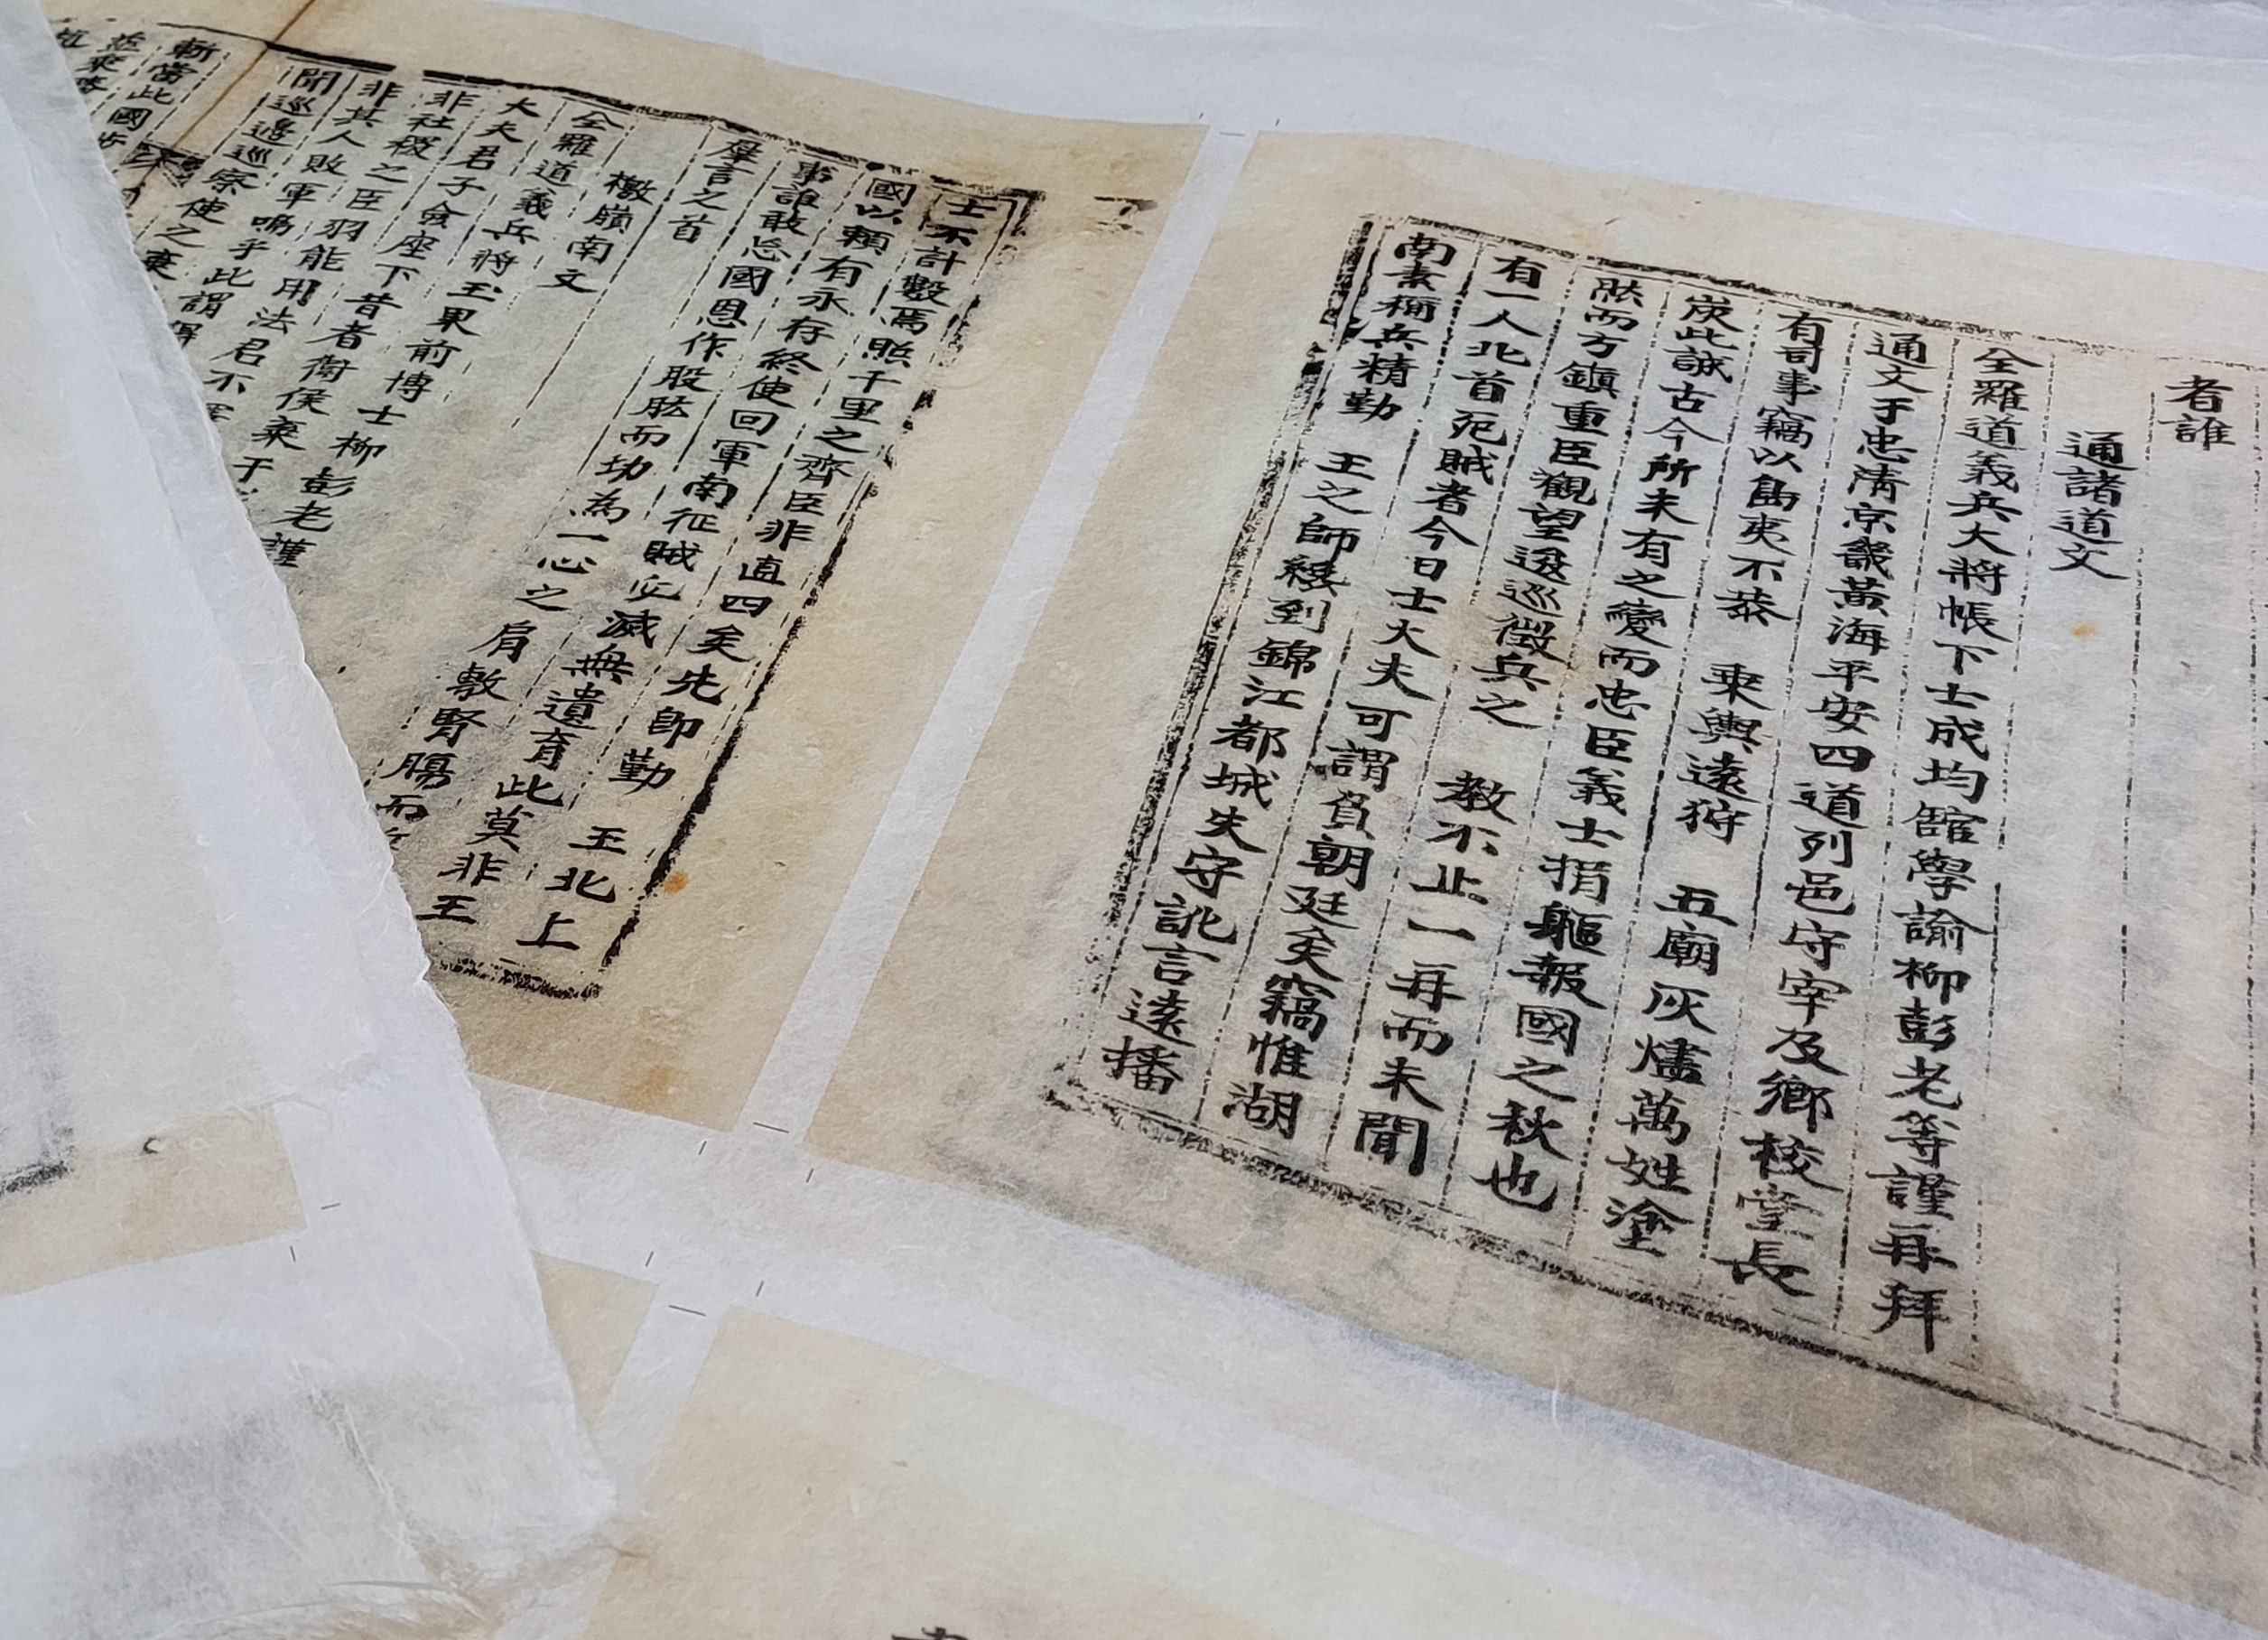 者誰
通諸道文
全羅道義兵大將帳下士成均館學諭柳彭老等謹再拜
通文于忠淸京畿黃海平安四道列邑守宰及鄕校堂長
有司事竊以島夷不恭 乘輿遠狩 五廟灰燼萬姓塗
炭此誠古今所未有之變而忠臣義士捐軀報國之秋也
然而方鎭重臣觀望逡巡徵兵之 敎不止一再而未聞
有一人北首死賊者今日士大夫可謂負朝廷矣竊惟湖
南素稱兵精勤 王之師纔到錦江都城失守訛言遠播
士不計數焉照千里之齊臣非直四矣先卽勤 王北上
國以賴有永存終使回軍南征賊必滅無遺育此莫非王
事誰敢忘國恩作股肱而功為一心之肩敷腎腸而
羣言之首
檄嶺南文
全羅道義兵將玉果前博士柳彭老謹
大夫君子僉座下昔者衛侯棄于
非社稷之臣羽能用法君不
非其人敗軍嗚乎此謂
聞巡邊巡察使之棄
斬當此國步